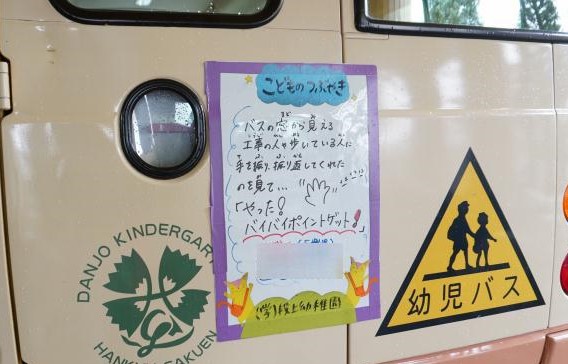 こどものつぶやき
バスの窓から見える
工事の人や歩いている人に
手を振り、振り返してくれた
のを見て…
「やった!
バイバイポイントゲット!」
(学)桜土幼稚園
DANJO KINDERGAR
HANK
AKUEN
幼児バス